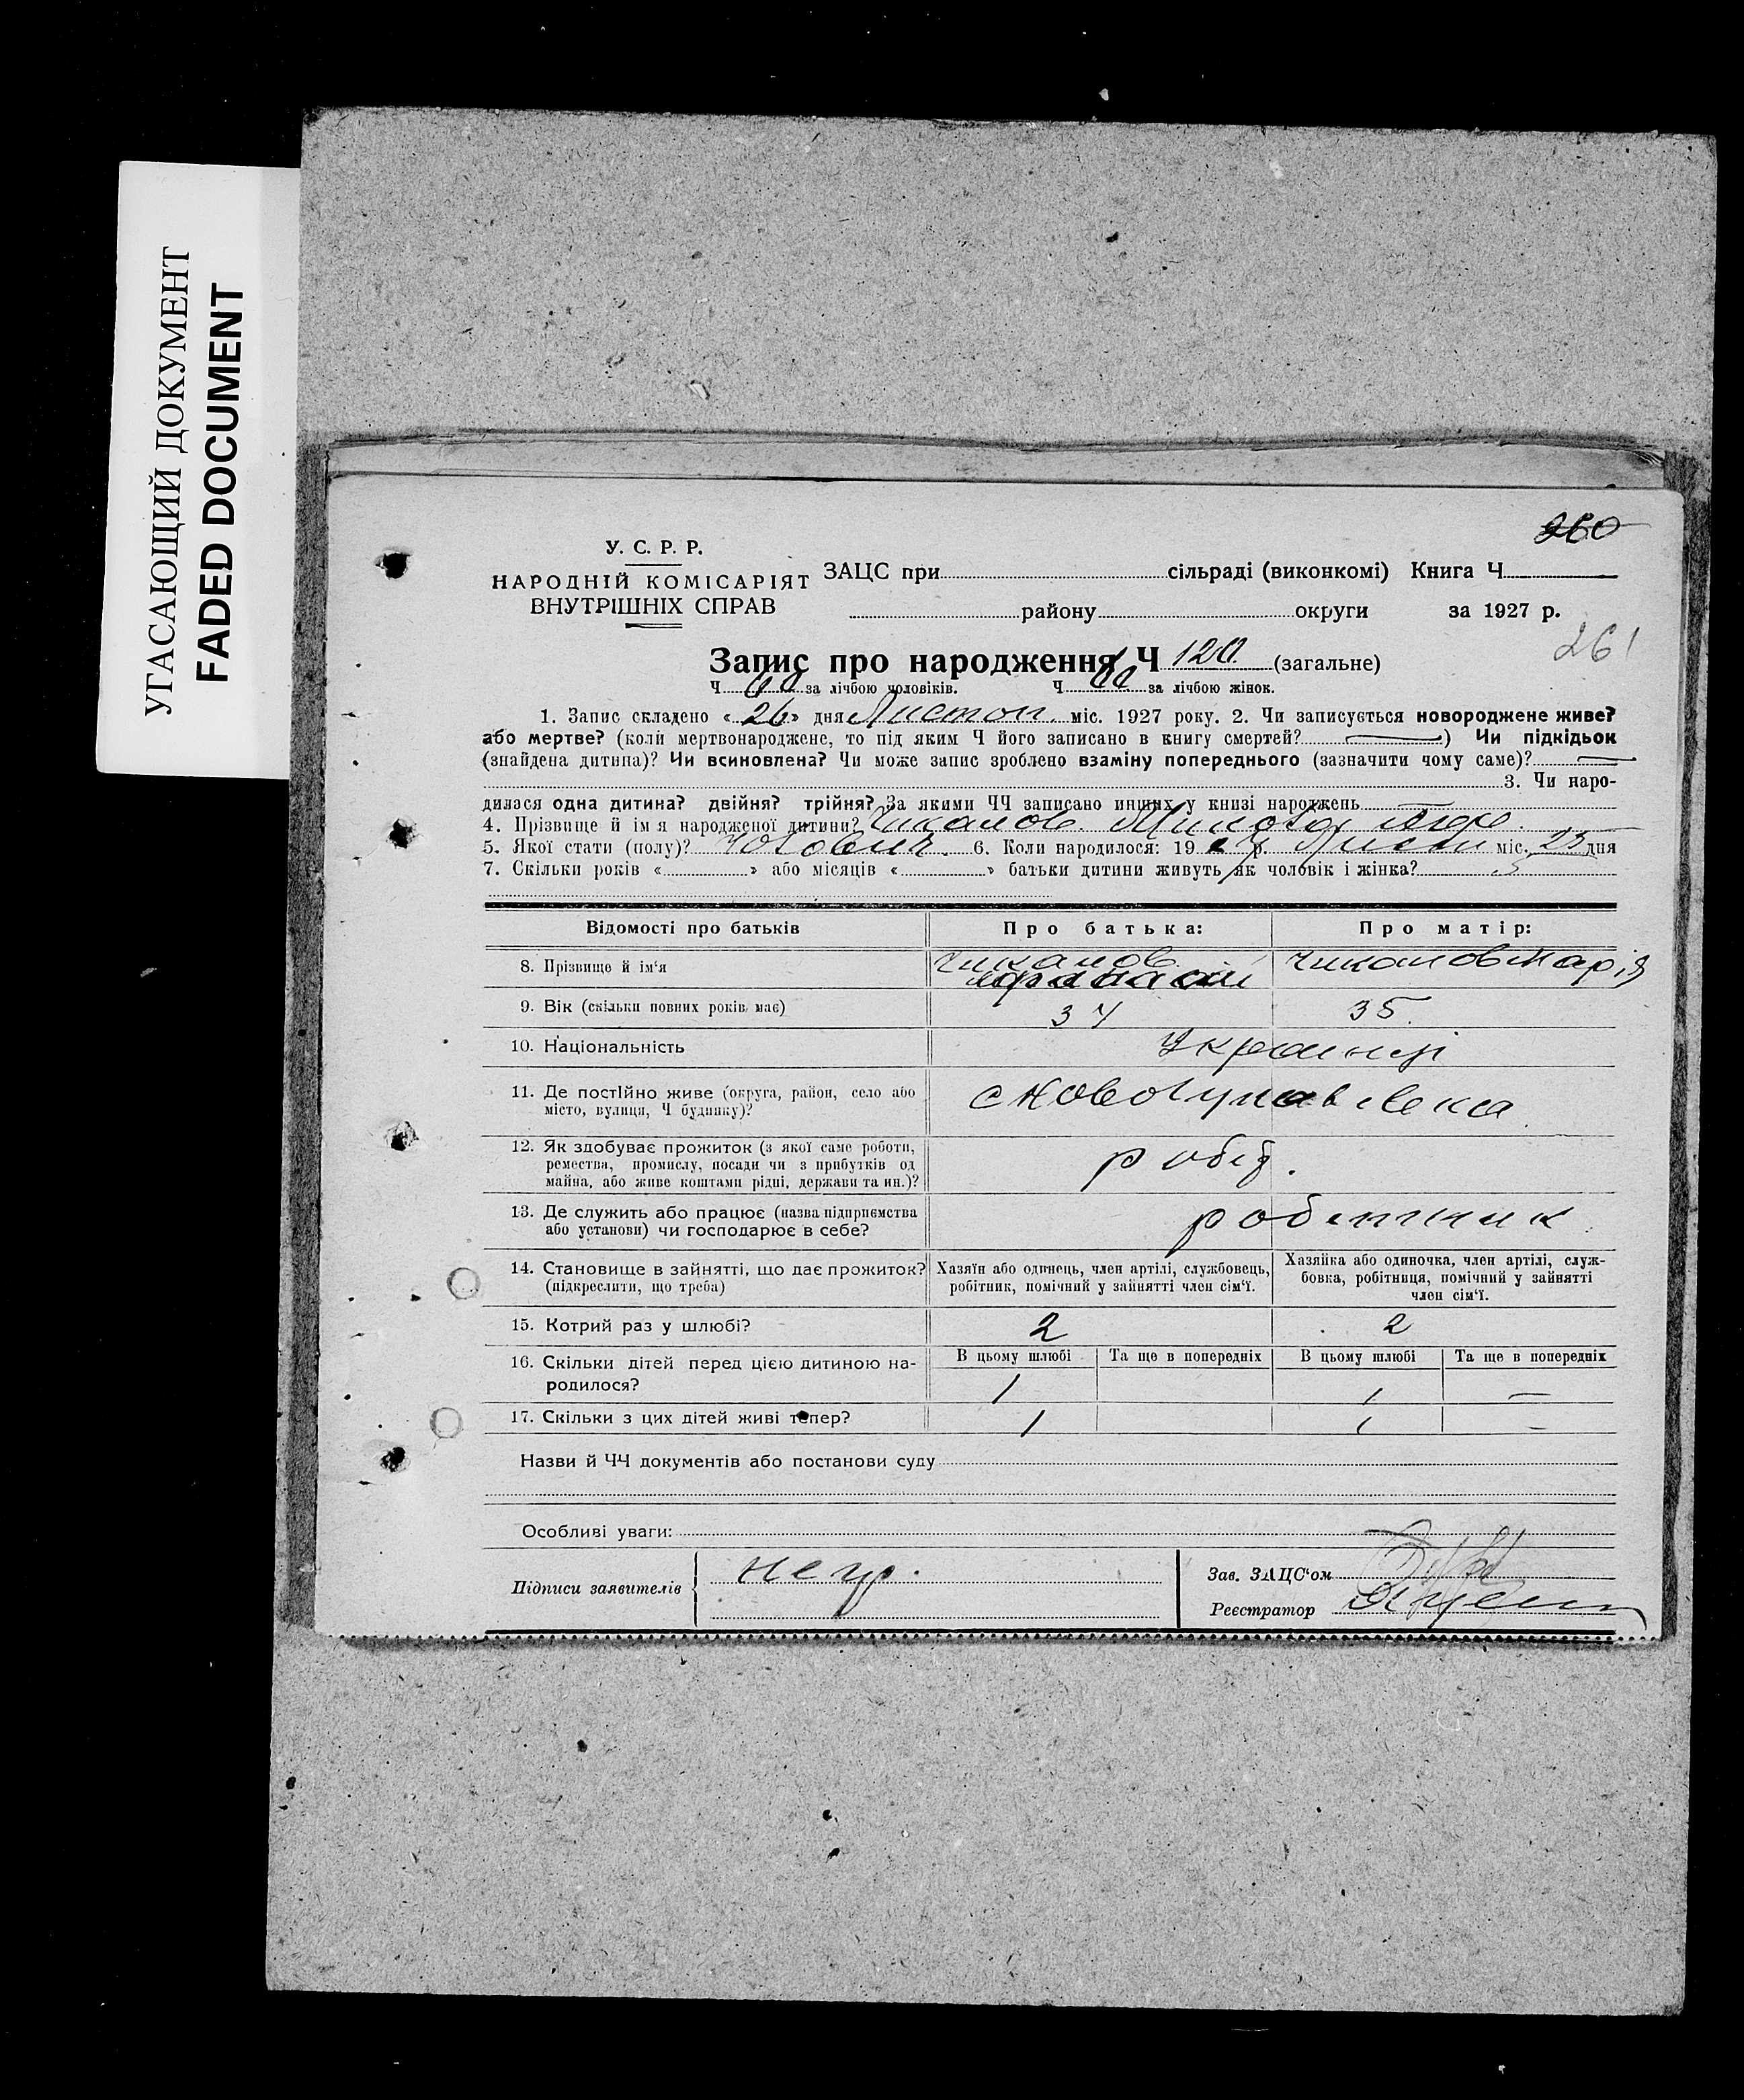 УГАСАЮЩИЙ ДОКУМЕНТ
FADED DOCUMENT
260
У. С. Р. Р.
НАРОДНІЙ КОМІСАРІЯТ
ВНУТРІШНІХ СПРАВ
ЗАЦС при сільраді (виконкомі) Книга Ч.
району округи за 1927 р.
261
Запис про народження Ч 120 (загальне)
Ч за лічбою чоловіків. Ч за лічбою жінок.
1. Запис складено « 26 » дня Листоп. міс. 1927 року. 2. Чи записується новороджене живе?
або мертве? (коли мертвонароджене, то під яким Ч його записано в книгу смертей? ) Чи підкідьок
(знайдена дитина)? Чи всиновлена? Чи може запис зроблено взаміну попереднього (зазначити чому саме)?
3. Чи наро-
дилася одна дитина? двійня? трійня? За якими ЧЧ записано инших у книзі народжень
4. Прізвище й ім я народженої дитини? Чикалов
5. Якої стати (полу)? Чоловіч. 6. Коли народилося: 19 27 р. Лист міс. 25 дня
7. Скільки років « » або місяців « » батьки дитини живуть як чоловік і жінка? 3
Відомості про батьків
Про батька:
Про матір:
8. Прізвище й ім'я Чикалов Чикалов Марія
9. Вік (скільки повних років має) 34 35.
10. Національність Українці
11. Де постійно живе (округа, район, село або
місто, вулиця, Ч будинку)?
12. Як здобуває прожиток (з якої саме роботи, робіт.
ремества, промислу, посади чи з прибутків од
майна, або живе коштами рідні, держави та ин.)?
13. Де служить або працює (назва підприємства робітник
або установи) чи господарює в себе?
14. Становище в зайнятті, що дає прожиток?
(підкреслити, що треба)
Хазяїн або одинець, член артілі, службовець,
робітник, помічний у зайнятті член сім'ї.
Хазяйка або одиночка, член артілі, служ-
бовка, робітниця, помічний у зайнятті
член сім'ї.
15. Котрий раз у шлюбі? 2 2
16. Скільки дітей перед цією дитиною на-
родилося?
В цьому шлюбі Та ще в попередніх В цьому шлюбі Та ще в попередніх
1 1 —
17. Скільки з цих дітей живі тепер? 1 1 —
Назви й ЧЧ документів або постанови суду
Особливі уваги:
Підписи заявителів негр.
Зав. ЗАЦС'ом
Реєстратор